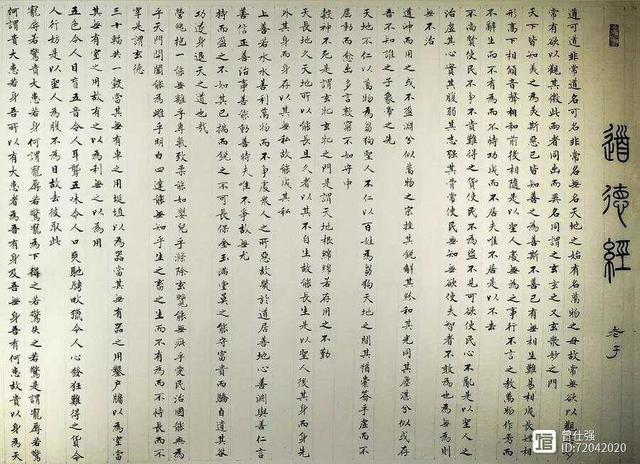 道德經
老子
道可道非常道名可名非常名無名天地之始有名萬物之母故常無欲以觀其妙
常有欲以觀其徼此兩者同出而異名同謂之玄玄之又玄衆妙之門
天下皆知美之為美斯惡已皆知善之為善斯不善已有無相生難易相成長短相
形高下相傾音聲相和前後相隨是以聖人處無為之事行不言之教萬物作焉而
不辭生而不有為而不恃功成而不居夫唯不居是以不去
不尚賢使民不爭不貴難得之貨使民不為盜不見可欲使民心不亂是以聖人之
治虛其心實其腹弱其志強其骨常使民無知無欲使夫智者不敢為也為無為則
無不治
道沖而用之或不盈淵兮似萬物之宗挫其銳解其紛和其光同其塵湛兮似或存
吾不知誰之子象帝之先
天地不仁以萬物為芻狗聖人不仁以百姓為芻狗天地之間其猶橐籥乎虛而不
屈動而愈出多言數窮不如守中
穀神不死是謂玄牝玄牝之門是謂天地根綿綿若存用之不勤
天長地久天地所以能長且久者以其不自生故能長生是以聖人後其身而身先
外其身而身存以其無私故能成其私
上善若水水善利萬物而不爭處衆人之所惡故幾於道居善地心善淵與善仁言
善信正善治事善能動善時夫唯不爭故無尤
持而盈之不如其已揣而銳之不可長保金玉滿堂莫之能守富貴而驕自遺其咎
功遂身退天之道也哉
營魄抱一能無離乎專氣致柔能如嬰兒乎滌除玄覽能無疵乎愛民治國能無為
乎天門開闔能為雌乎明白四達能無知乎生之畜之生而不有為而不恃長而不
宰是謂玄德
三十輻共一轂當其無有車之用埏埴以為器當其無有器之用鑿戶牖以為室當
其無有室之用故有之以為利無之以為用
五色令人目盲五音令人耳聾五味令人口爽馳騁畋獵令人心發狂難得之貨令
人行妨是以聖人為腹不為目故去彼取此
寵辱若驚貴大患若身何謂寵辱若驚寵為下得之若驚失之若驚是謂寵辱若驚
何謂貴大患若身吾所以有大患者為吾有身及吾無身吾有何患故貴以身為天
曾仕强
ID:72042020